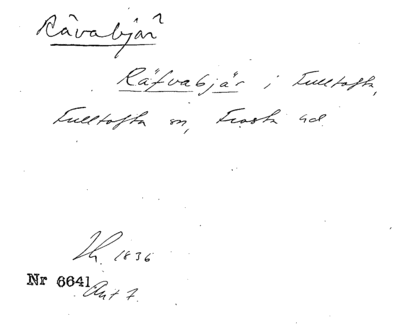 Rävabjär
Räfvabjär i Fulltofta,
Fulltofta sn, Frosta hd
Th. 1836
Nr 6641
Akt 7.